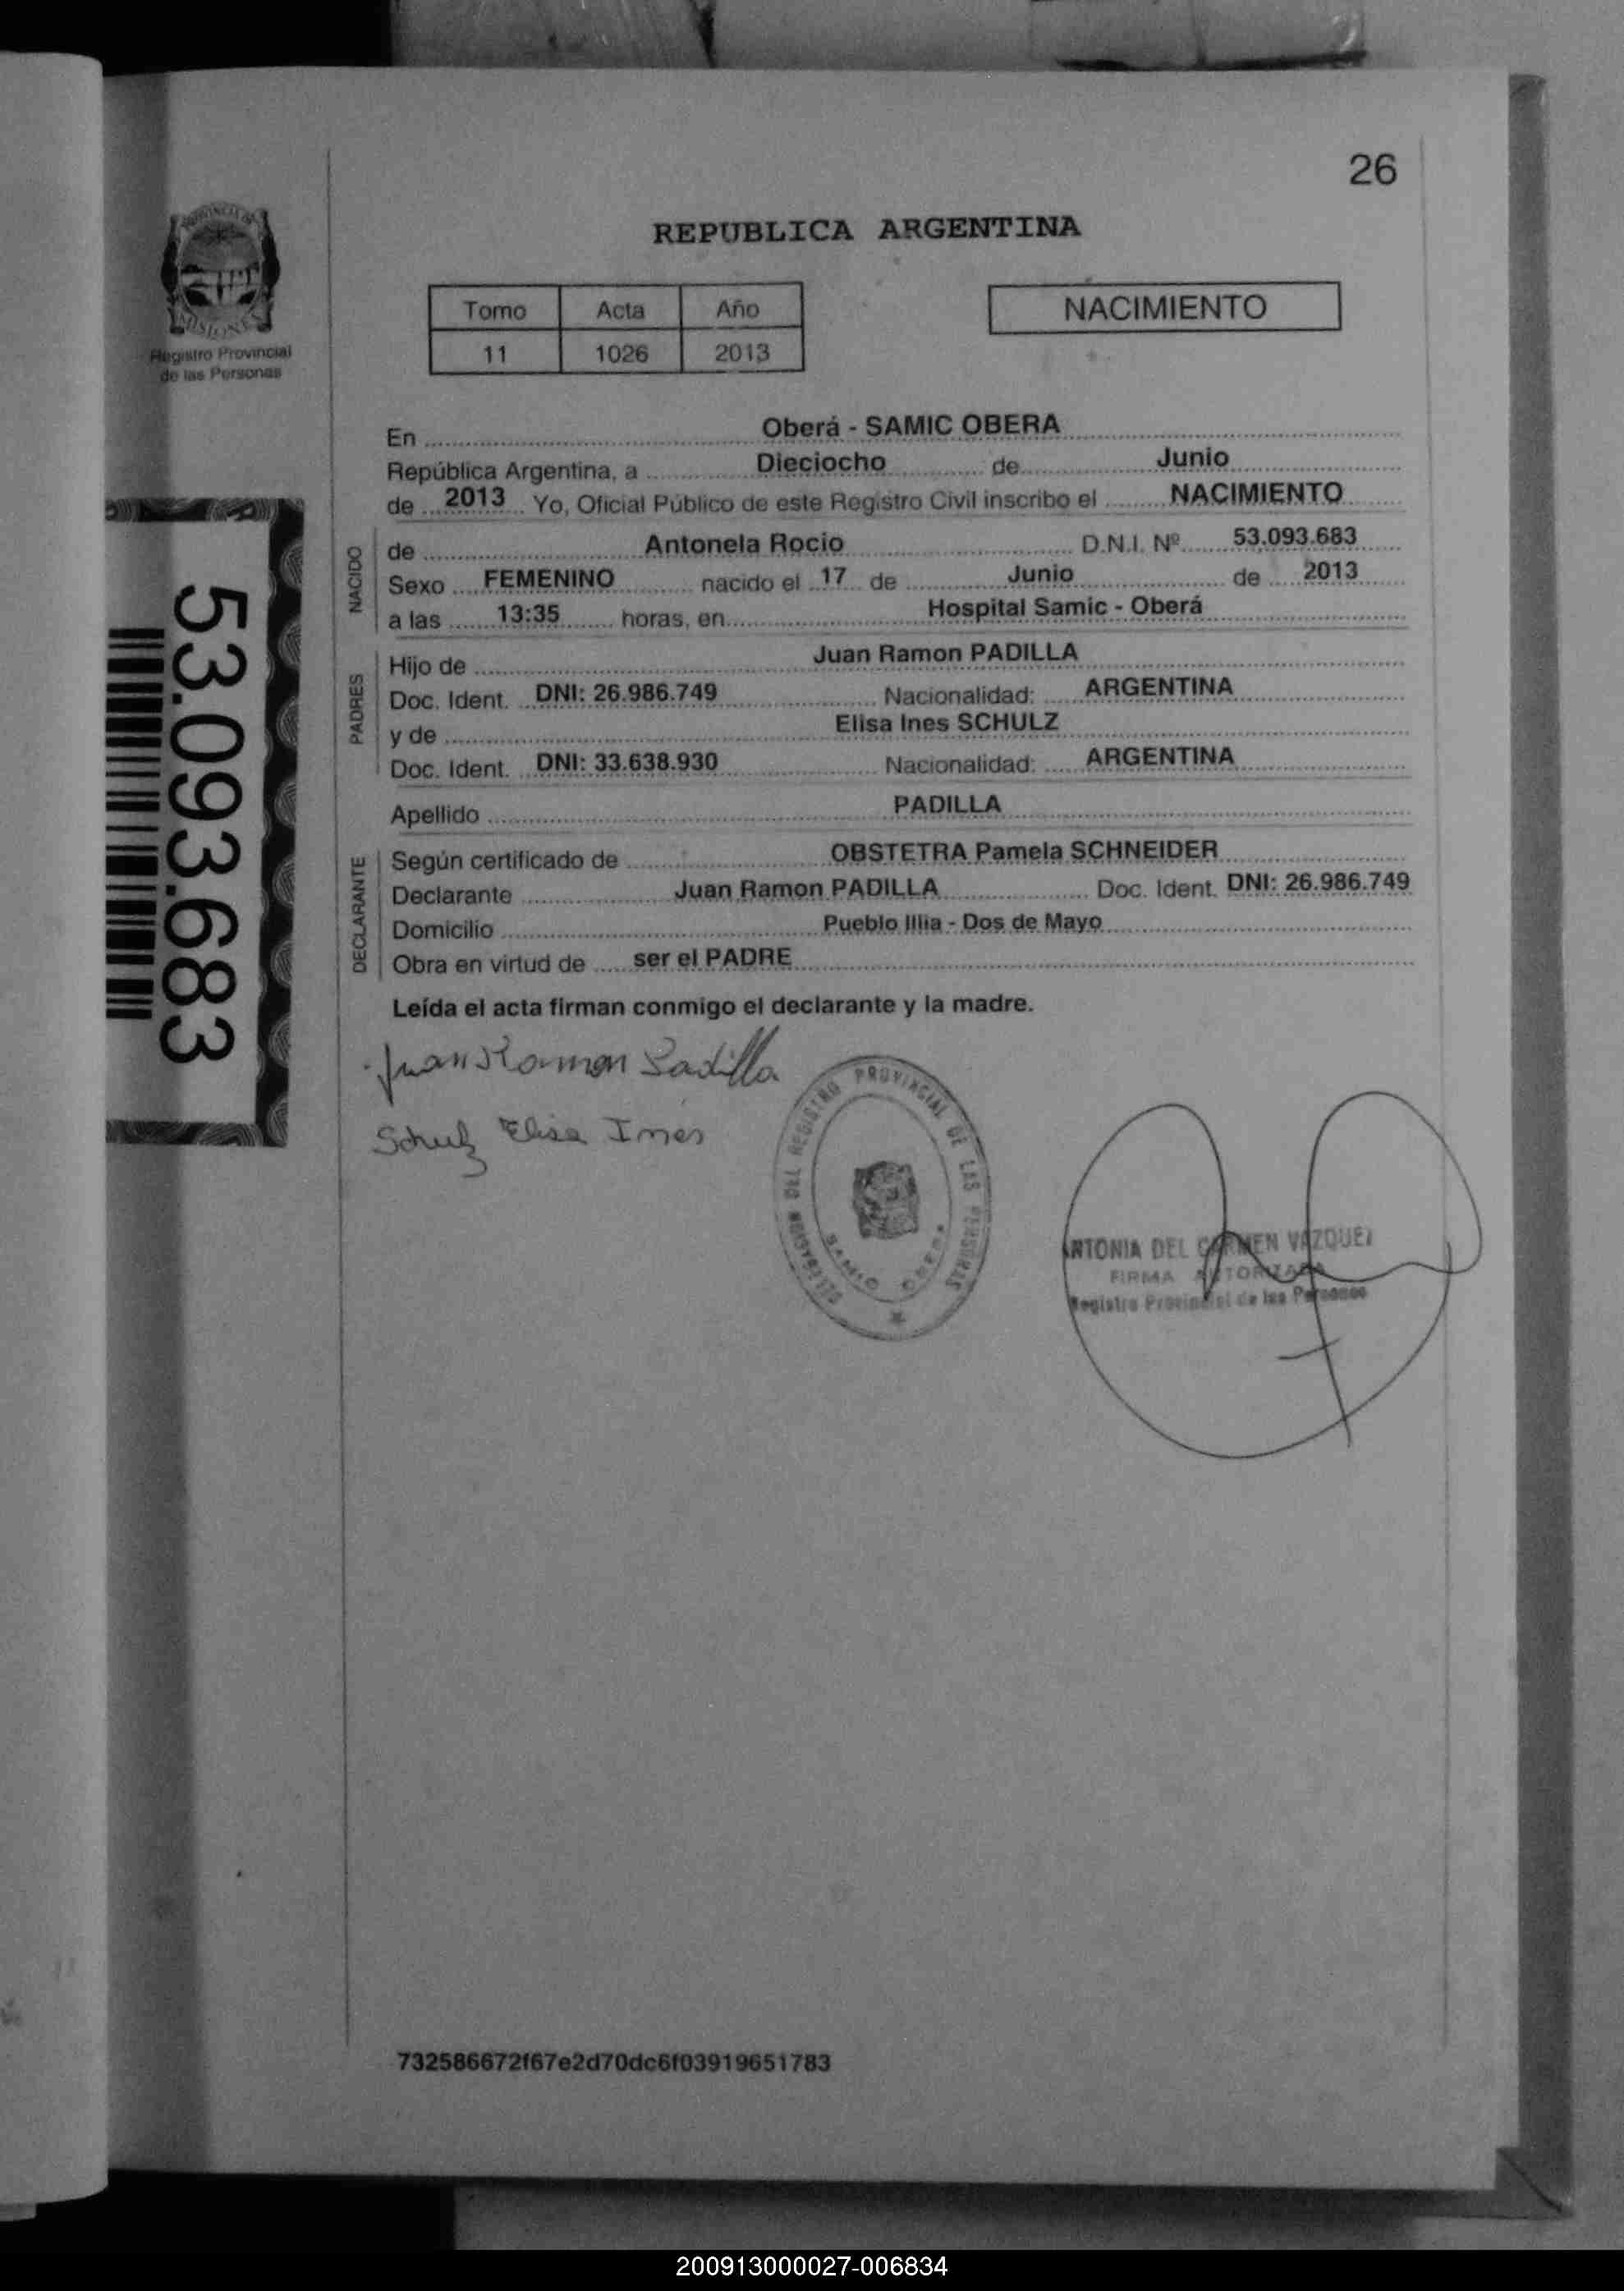 26
PROVINCIA DE
MISIONES
Registro Provincial
de las Personas
REPUBLICA ARGENTINA
Tomo Acta Año
11 1026 2013
NACIMIENTO
En Oberá - SAMIC OBERA
República Argentina, a Dieciocho de Junio
de 2013 Yo, Oficial Público de este Registro Civil inscribo el NACIMIENTO
NACIDO
de Antonela Rocio D.N.I. Nº 53.093.683
Sexo FEMENINO nacido el 17 de Junio de 2013
a las 13:35 horas, en Hospital Samic - Oberá
PADRES
Hijo de Juan Ramon PADILLA
Doc. Ident. DNI: 26.986.749 Nacionalidad: ARGENTINA
y de Elisa Ines SCHULZ
Doc. Ident. DNI: 33.638.930 Nacionalidad: ARGENTINA
Apellido PADILLA
DECLARANTE
Según certificado de OBSTETRA Pamela SCHNEIDER
Declarante Juan Ramon PADILLA Doc. Ident. DNI: 26.986.749
Domicilio Pueblo Illia - Dos de Mayo
Obra en virtud de ser el PADRE
Leída el acta firman conmigo el declarante y la madre.
53.093.683
Juan Ramon Padilla
Schulz Elisa Ines
DELEGACION DEL REGISTRO PROVINCIAL DE LAS PERSONAS
SAMIC OBERA
ANTONIA DEL CARMEN VAZQUEZ
FIRMA AUTORIZADA
Registro Provincial de las Personas
732586672f67e2d70dc6f03919651783
200913000027-006834